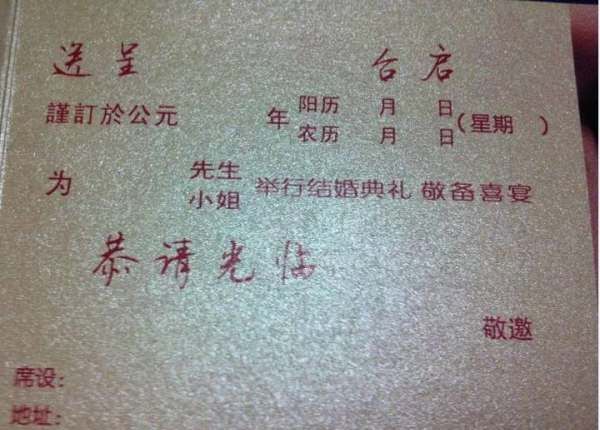 送呈 台启
謹訂於公元 年 阳历 月 日 (星期 )
农历 月 日
为 先生
小姐 举行结婚典礼 敬备喜宴
恭请光临
敬邀
席设:
地址: